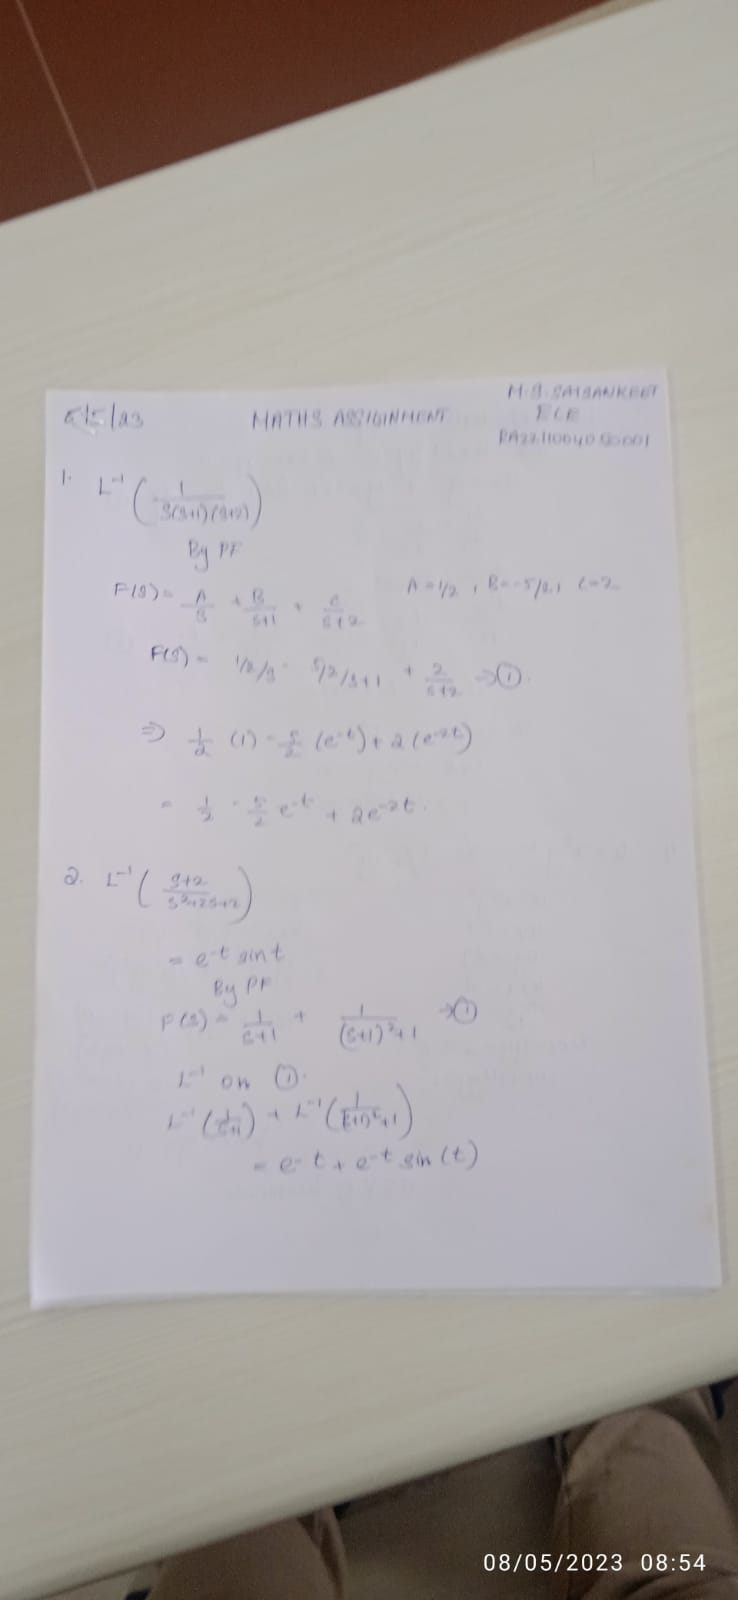 5/5/23
MATHS ASSIGINMENT
M.S. SAISANKEET
ECE
1. L⁻¹ ( 1 / S(S+1)(S+2) )
By PF
F(S) = A/S + B/S+1 + C/S+2
A = 1/2 , B = -5/2 , C = 2
F(S) = 1/2/S - 5/2/S+1 + 2/S+2 ⇒ ①.
⇒ 1/2 (1) - 5/2 (e⁻ᵗ) + 2 (e⁻²ᵗ)
= 1/2 - 5/2 e⁻ᵗ + 2e⁻²ᵗ.
2. L⁻¹ ( S+2 / S²+2S+2 )
= e⁻ᵗ sin t
By PF
F(S) = 1/S+1 + 1/(S+1)²+1 → ①
L⁻¹ on ①.
L⁻¹ (1/S+1) + L⁻¹ (1/(S+1)²+1)
= e⁻ᵗ + e⁻ᵗ sin (t)
08/05/2023 08:54